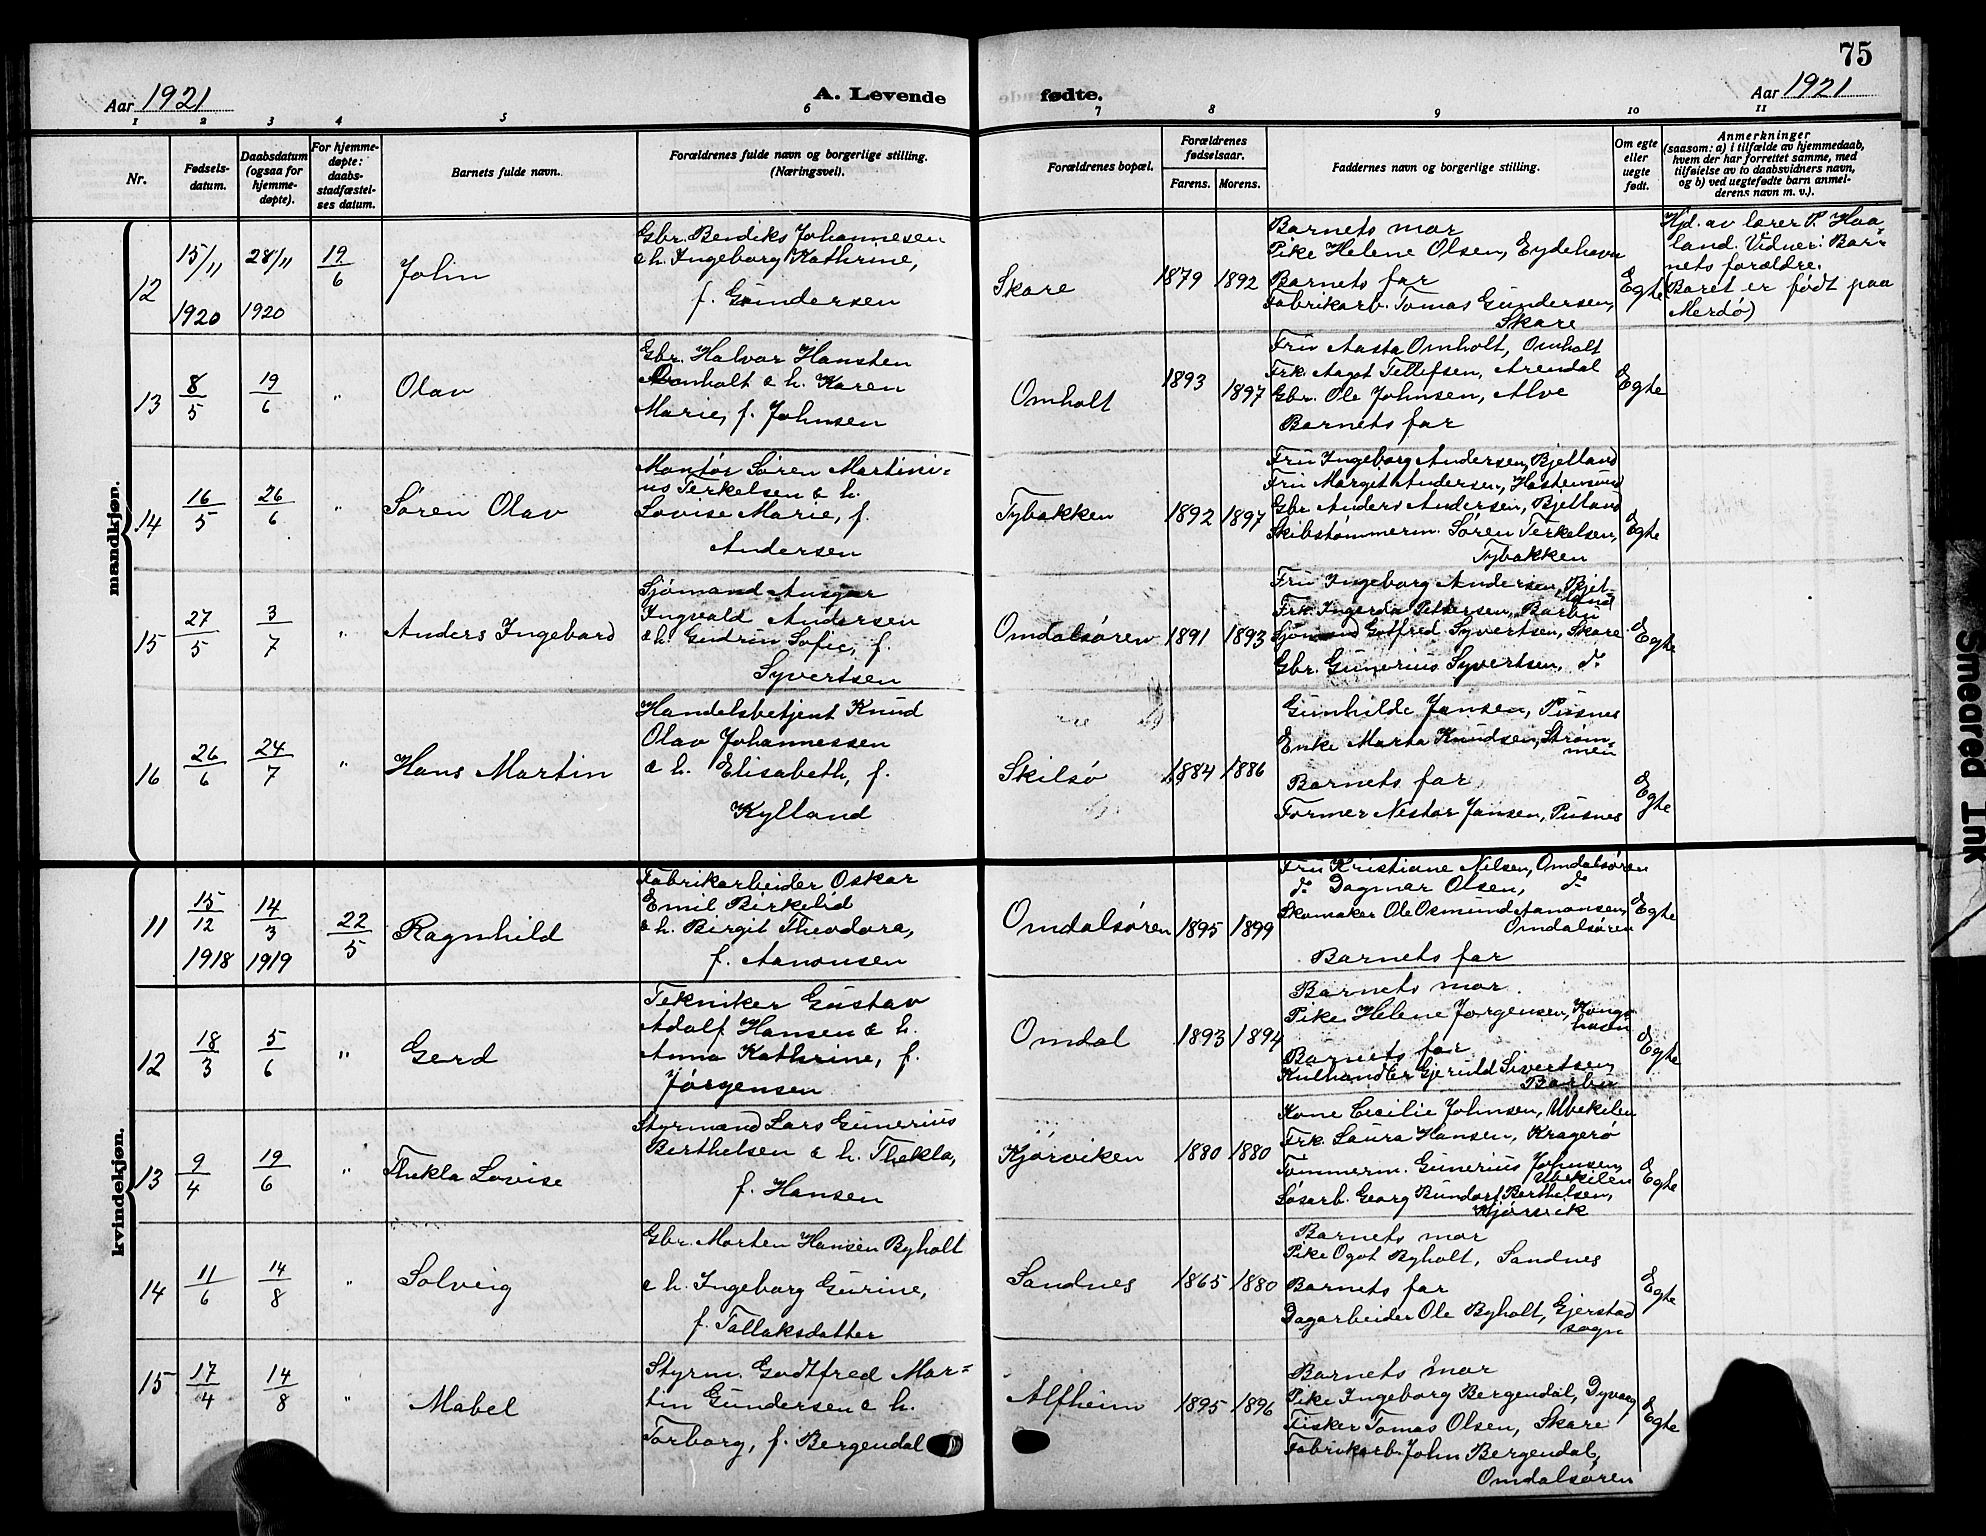 75
Aar 1921
A. Levende fødte.
Aar 1921
1 2 3 4 5 6 7 8 9 10 11
Nr.
Fødsels-
datum.
Daabsdatum
(ogsaa for
hjemme-
døpte).
For hjemme-
døpte:
daabs-
stadfæstel-
ses datum.
Barnets fulde navn.
Forældrenes fulde navn og borgerlige stilling.
(Næringsvei).
Forældrenes bopæl.
Forældrenes
fødselsaar.
Farens. Morens.
Faddernes navn og borgerlige stilling.
Om egte
eller
uegte
født.
Anmerkninger
(saasom: a) i tilfælde av hjemmedaab,
hvem der har forrettet samme, med
tilføielse av to daabsvidners navn,
og b) ved uegtefødte barn anmel-
derens navn m. v.).
mandkjøn.
12
15/11
1920
28/11
1920
19/6
John
Gbr. Bendiks Johannesen
& h. Ingeborg Kathrine,
f. Gundersen
Skare
1879 1892
Barnets mor
Pike Helene Olsen, Eydehavn
Barnets far
Fabrikarb. Tomas Gundersen,
Skare
Egte
Hjd. av lærer P. Haa-
land. Vidner: Bar-
nets forældre.
(Baret er født paa
Merdø)
13
8/5
19/6
"
Olav
Gbr. Halvor Hansten
Omholt & h. Karen
Marie, f. Johnsen
Omholt
1893 1897
Fru Aasta Omholt, Omholt
Frk. Aagot Tellefsen, Arendal
Gbr. Ole Johnsen, Alve
Barnets far
Egte
14
16/5
26/6
"
Søren Olav
Montør Søren Martini-
us Terkelsen & h.
Lovise Marie, f.
Andersen
Tybakken
1892 1897
Fru Ingeborg Andersen, Bjelland
Fru Margit Andersen, Hastensund
Gbr. Anders Andersen, Bjelland
Skibstømmerm. Søren Terkelsen,
Tybakken
Egte
15
27/5
3/7
"
Anders Ingebard
Sjømand Ansgar
Ingvald Andersen
& h. Gudrun Sofie, f.
Syvertsen
Omdalsøren
1891 1893
Fru Ingeborg Andersen, Bjel-
land
Frk. Ingerda Pettersen, Barbu
Sjømand Gotfred Syvertsen, Skare
Gbr. Gunerius Syvertsen, do
Egte
16
26/6
24/7
"
Hans Martin
Handelsbetjent Knud
Olav Johannessen
& h. Elisabeth, f.
Kylland
Skilsø
1884 1886
Gunhilde Jansen, Pusnes
Enke Marta Knudsen, Strøm-
men
Barnets far
Former Nestor Jansen, Pusnes
Egte
kvindekjøn.
11
15/12
1918
14/3
1919
22/5
Ragnhild
Fabrikarbeider Oskar
Emil Birkelid
& h. Birgit Theodora,
f. Aanonsen
Omdalsøren
1895 1899
Fru Kristiane Nilsen, Omdalsøren
do Dagmar Olsen, do
Skomaker Ole Osmund Aanonsen,
Omdalsøren
Barnets far
Egte
12
18/3
5/6
"
Gerd
Tekniker Gustav
Adolf Hansen & h.
Anna Kathrine, f.
Jørgensen
Omdal
1893 1894
Barnets mor
Pike Helene Jørgensen, Kongs-
havn
Barnets far
Kulhandler Gjeruld Sivertsen,
Barbu
Egte
13
9/4
19/6
"
Thekla Lovise
Styrmand Lars Gunerius
Berthelsen & h. Thekla,
f. Hansen
Kjørviken
1880 1880
Kone Cecilie Johnsen, Ubekilen
Frk. Laura Hansen, Kragerø
Tømmerm. Gunerius Johnsen,
Ubekilen
Løsarb. Georg Bundorf Berthelsen,
Kjørvik
Egte
14
11/6
14/8
"
Solveig
Gbr. Morten Hansen Byholt
& h. Ingeborg Gurine,
f. Tallaksdatter
Sandnes
1865 1880
Barnets mor
Pike Ogot Byholt, Sandnes
Barnets far
Dagarbeider Ole Byholt, Gjerstad
sogn
Egte
15
17/4
14/8
"
Mabel
Styrm. Godtfred Mar-
tin Gundersen & h.
Torborg, f. Bergendal
Alfheim
1895 1896
Barnets mor
Pike Ingeborg Bergendal, Dyvaag
Fisker Tomas Olsen, Skare
Fabrikarb. John Bergendal,
Omdalsøren
Egte
Smeared Ink